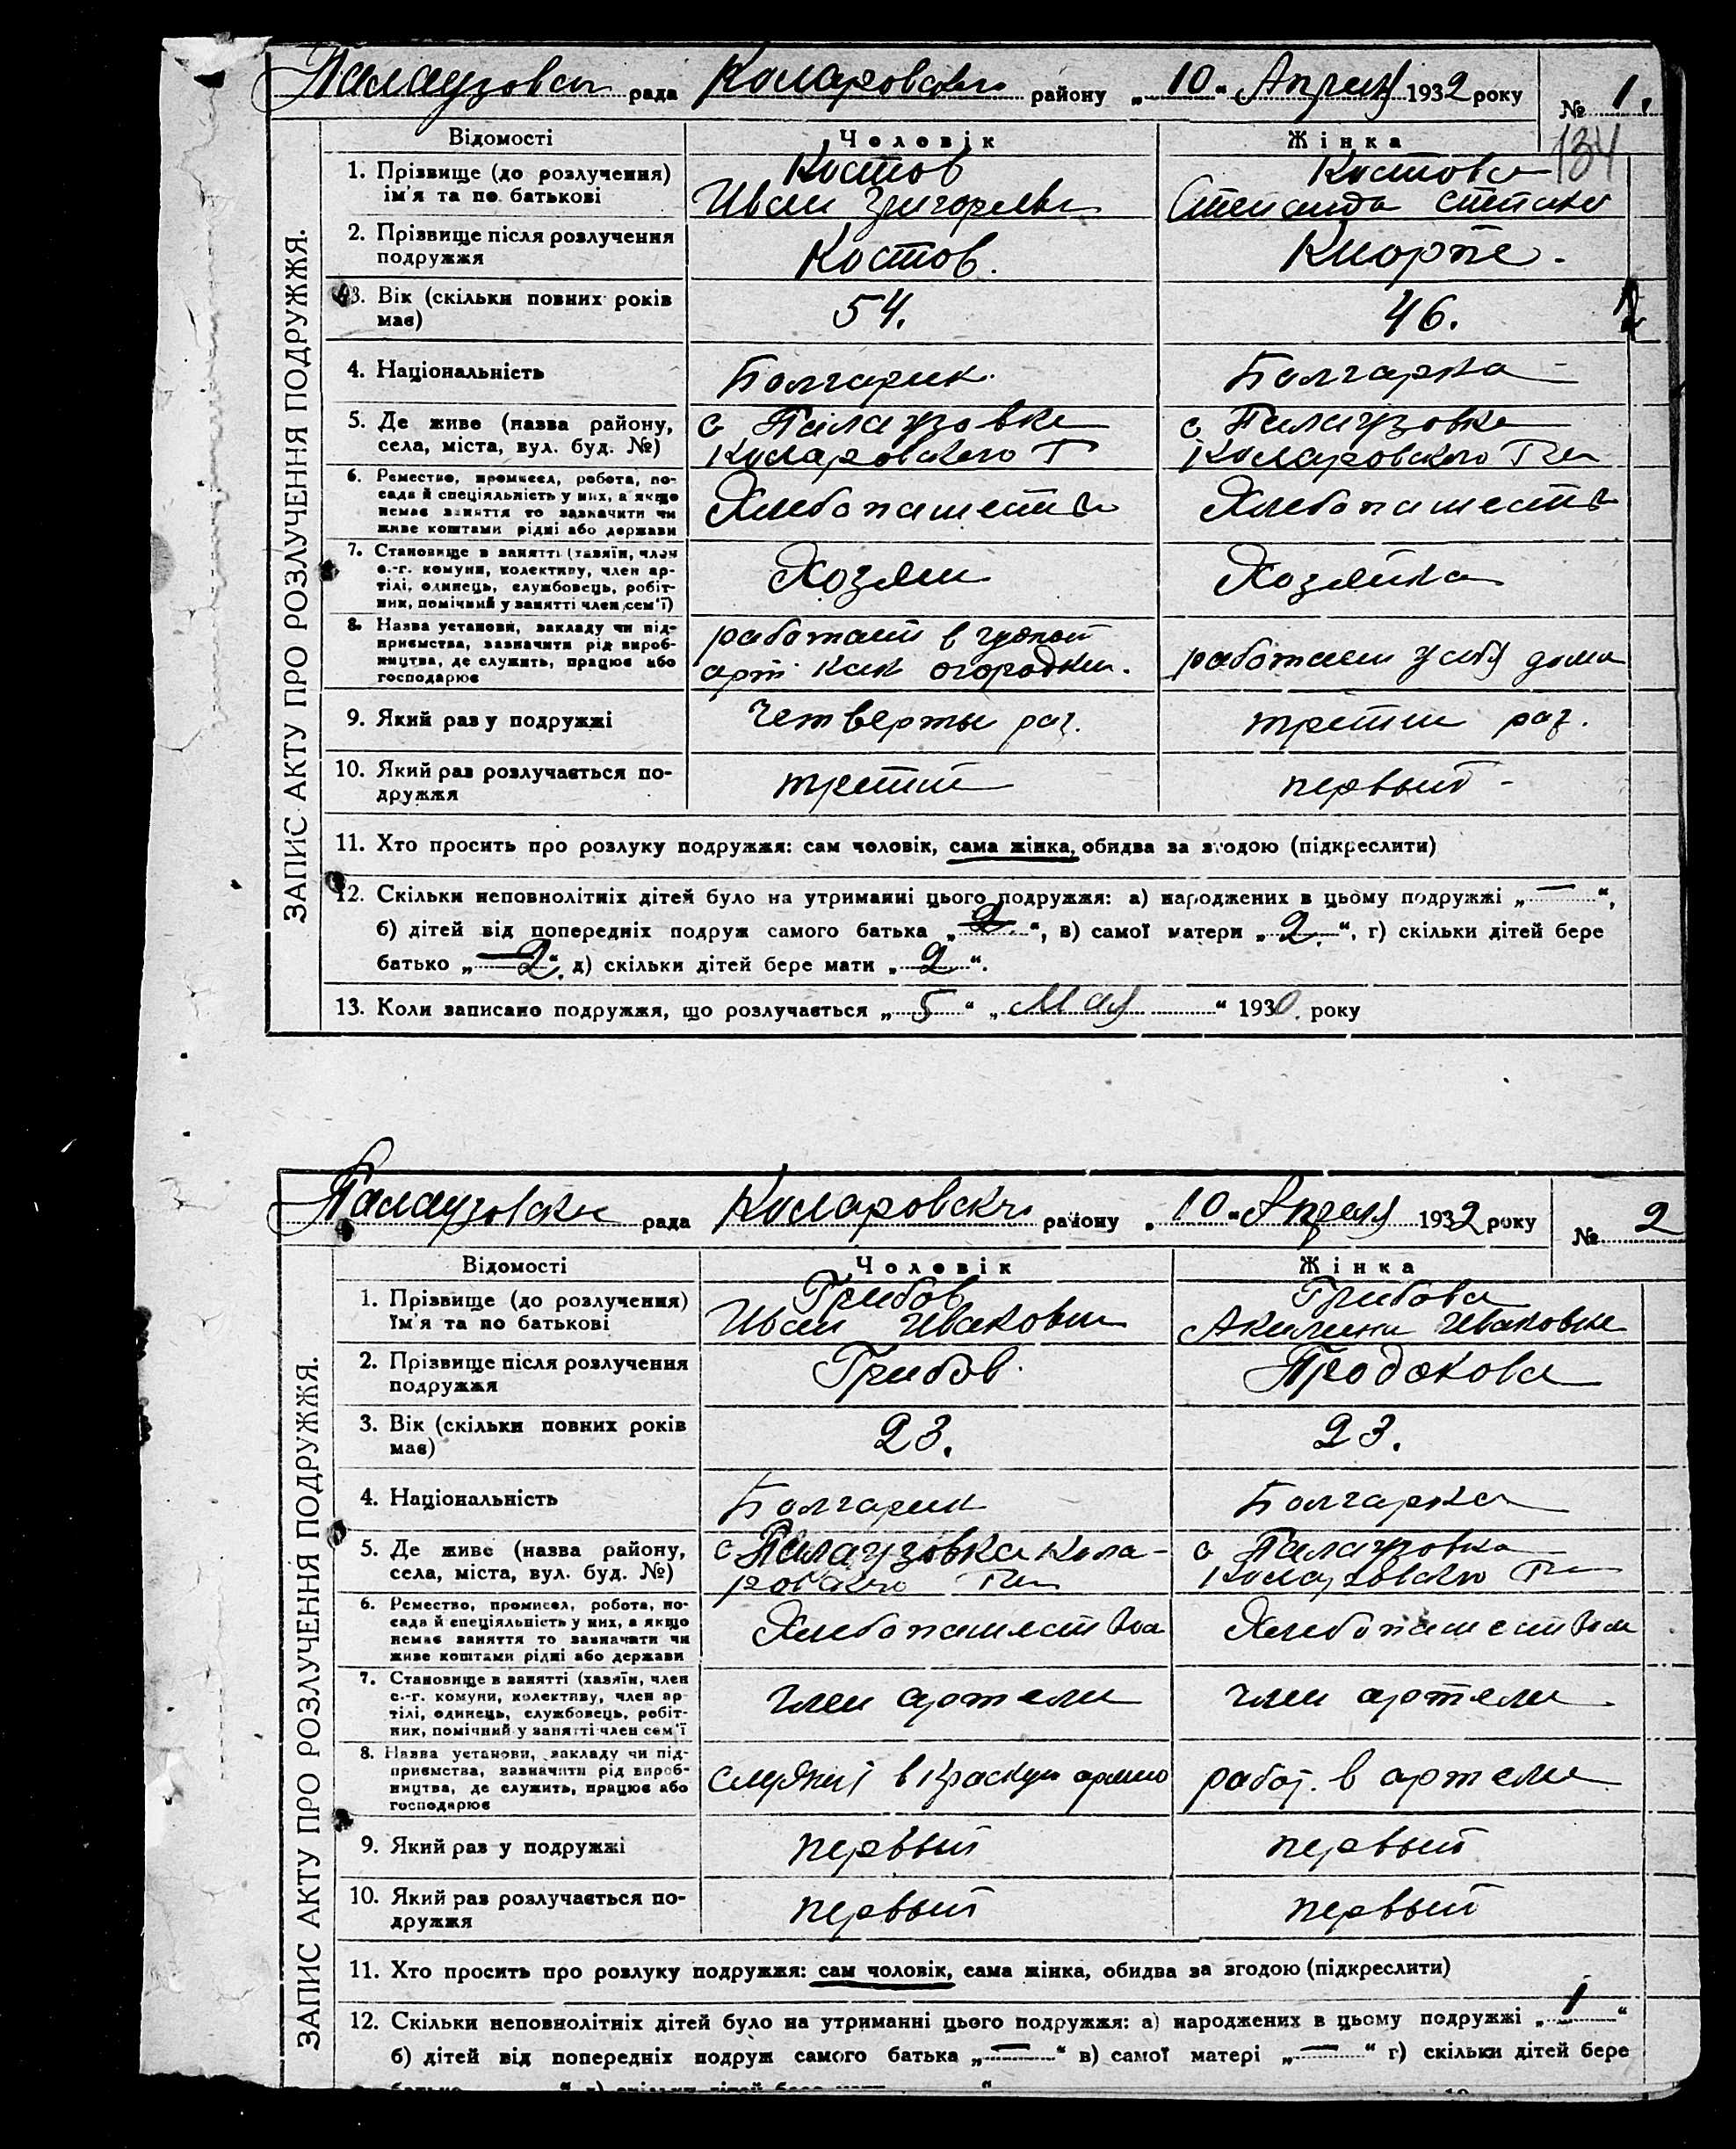 Палаузовск рада Коларовского району „10“ Апреля 1932 року № 1.
134
Відомості Чоловік Жінка
1. Прізвище (до розлучення) Костов Костова
ім'я та по батькові Иван Григорьев Степанида
2. Прізвище після розлучення
подружжя Костов. Киорпе.
3. Вік (скільки повних років
має) 54. 46.
4. Національність Болгарин. Болгарка
5. Де живе (назва району, с Палаузовка с Палаузовка
села, міста, вул. буд. №) Коларовского Коларовского
6. Ремество, промисел, робота, по-
сада й спеціяльність у них, а якщо
немає заняття то зазначити чи
живе коштами рідні або держави
Хлебопашеств Хлебопашеств
7. Становище в занятті (хазяїн, член
с.-г. комуни, колективу, член ар-
тілі, одинець, службовець, робіт-
ник, помічний у занятті член сем'ї)
Хозяин Хозяйка
8. Назва установи, закладу чи під-
приємства, зазначити рід вироб-
ництва, де служить, працює або
господарює
работает в
арт как огородник. работает у себя дома
9. Який раз у подружжі Четверты раз. третий раз.
10. Який раз розлучається по-
дружжя третий первый
11. Хто просить про розлуку подружжя: сам чоловік, сама жінка, обидва за згодою (підкреслити)
12. Скільки неповнолітніх дітей було на утриманні цього подружжя: а) народжених в цьому подружжі „—“,
б) дітей від попередніх подруж самого батька „2“, в) самої матери „2.“, г) скільки дітей бере
батько „2“, д) скільки дітей бере мати „2“.
13. Коли записано подружжя, що розлучається „5“ „Мая“ 1930. року
ЗАПИС АКТУ ПРО РОЗЛУЧЕННЯ ПОДРУЖЖЯ.
Палаузовск рада Коларовского району „10“ Апреля 1932 року № 2
Відомості Чоловік Жінка
1. Прізвище (до розлучення) Грибов Грибова
Ім'я та по батькові Иван Иванович Акилина Ивановна
2. Прізвище після розлучення
подружжя Грибов. Продакова
3. Вік (скільки повних років
має) 23. 23.
4. Національність Болгарин Болгарка
5. Де живе (назва району, с Палаузовка Кола- с Палаузовка
села, міста, вул. буд. №) ровского Коларовского
6. Ремество, промисел, робота, по-
сада й спеціяльність у них, а якщо
немає заняття то зазначати чи
живе коштами рідні або держави
Хлебопашества Хлебопашеством
7. Становище в занятті (хазяїн, член
с.-г. комуни, колективу, член ар-
тілі, одинець, службовець, робіт-
ник, помічний у занятті член сем'ї
член артели член артели
8. Назва установи, закладу чи під-
приємства, зазначити рід вироб-
ництва, де служить, працює або
господарює
служит в Красную армию работ. в артели
9. Який раз у подружжі первый первый
10. Який раз розлучається по-
дружжя первый первый
11. Хто просить про розлуку подружжя: сам чоловік, сама жінка, обидва за згодою (підкреслити)
12. Скільки неповнолітніх дітей було на утриманні цього подружжя: а) народжених в цьому подружжі „1“
б) дітей від попередніх подруж самого батька „—“ в) самої матері „—“ г) скільки дітей бере
ЗАПИС АКТУ ПРО РОЗЛУЧЕННЯ ПОДРУЖЖЯ.